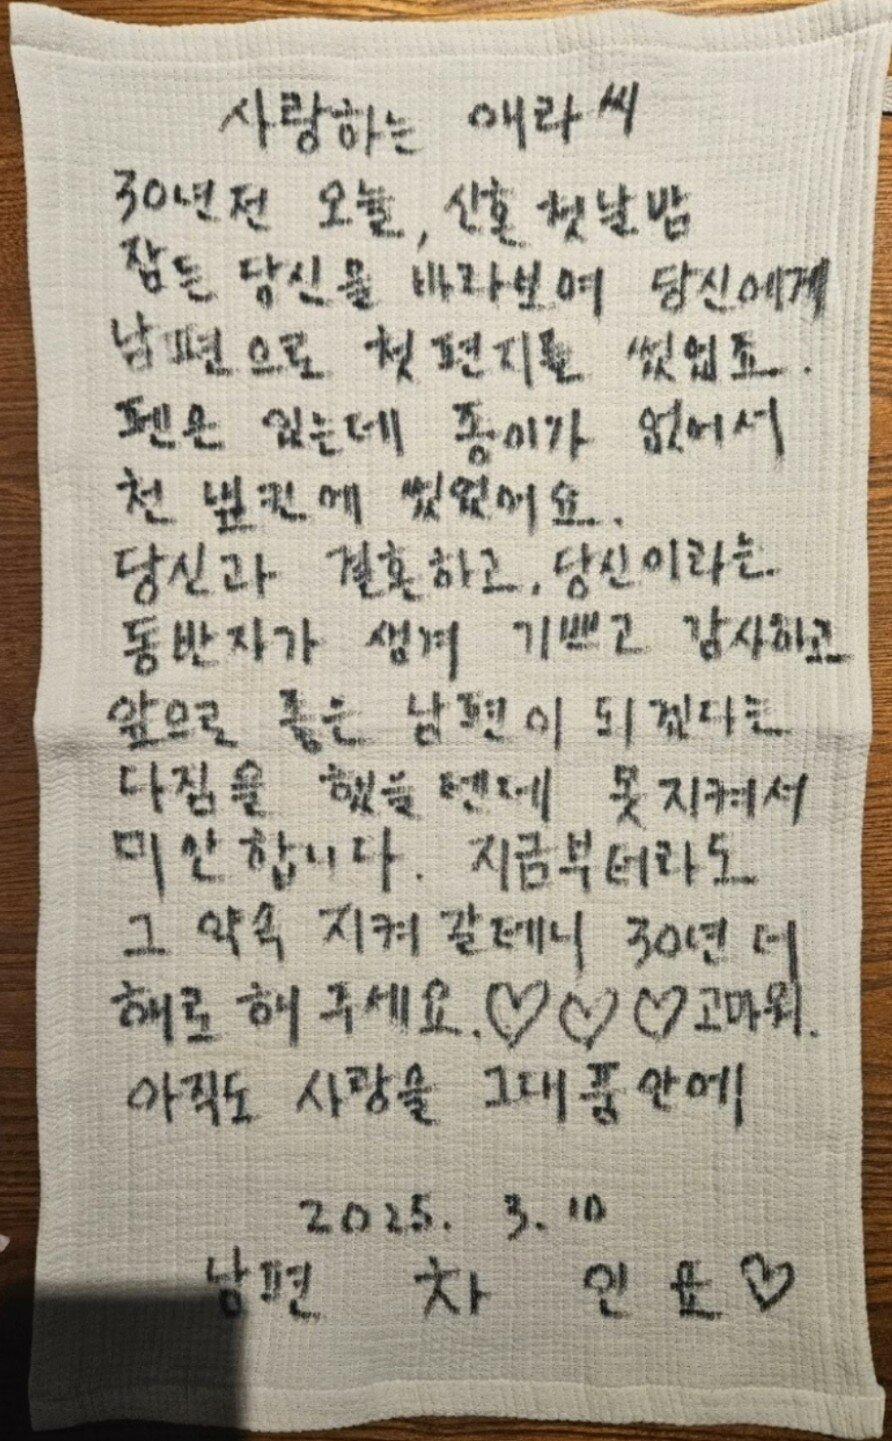 사랑하는 애라씨
30년전 오늘, 신혼 첫날밤
잠든 당신을 바라보며 당신에게
남편으로 첫 편지를 썼었죠.
펜은 있는데 종이가 없어서
천 냅킨에 썼었어요.
당신과 결혼하고, 당신이라는
동반자가 생겨 기쁘고 감사하고
앞으로 좋은 남편이 되겠다는
다짐을 했을텐데 못지켜서
미안합니다. 지금부터라도
그 약속 지켜갈테니 30년 더
해로 해 주세요.♡♡♡고마워.
아직도 사랑을 그대 품안에
2025. 3. 10
남편 차 인 표♡